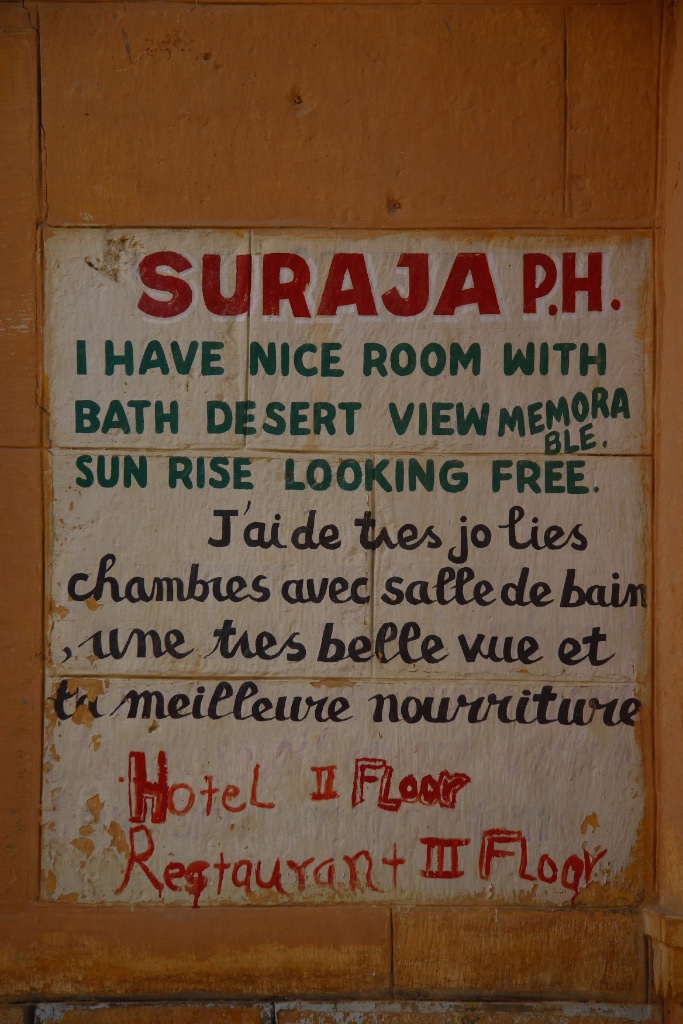 SURAJA P.H.
I HAVE NICE ROOM WITH
BATH DESERT VIEW MEMORA
BLE.
SUN RISE LOOKING FREE.
J'ai de tres jolies
chambres avec salle de bain
, une tres belle vue et
meilleure nourriture
Hotel II Floor
Restaurant III Floor